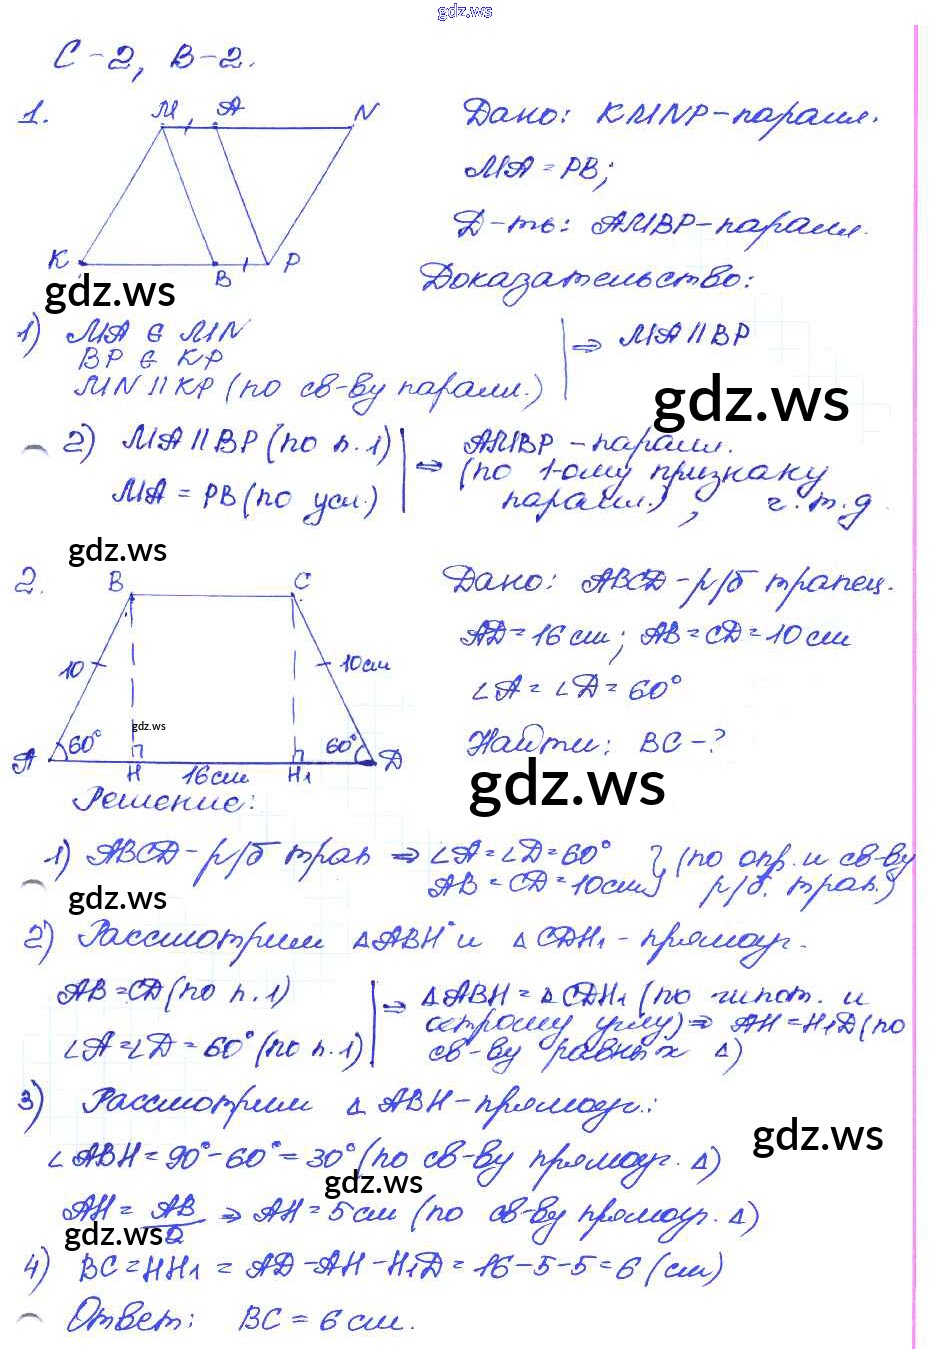 gdz.ws
С-2, В-2.
1. M A N K B P
Дано: KMNP-паралл.
MA = PB;
Д-ть: AMBP-паралл.
Доказательство:
gdz.ws
1) MA ∈ MN
BP ∈ KP
MN || KP (по св-ву паралл.)
⇒ MA || BP
gdz.ws
2) MA || BP (по п.1)
MA = PB (по усл.)
⇒ AMBP - паралл.
(по 1-ому признаку
паралл.), ч.т.д.
gdz.ws
2. B C 10 10см 60° 60° A H 16см H₁ D
gdz.ws
Дано: ABCD-р/б трапец.
AD=16см; AB=CD=10см
∠A = ∠D = 60°
Найти: BC-?
gdz.ws
Решение:
1) ABCD-р/б трап ⇒ ∠A=∠D=60° } (по опр. и св-ву
AB=CD=10см } р/б. трап.)
gdz.ws
2) Рассмотрим △ABH и △CDH₁ - прямоуг.
AB=CD (по п.1)
∠A=∠D=60° (по п.1)
⇒ △ABH = △CDH₁ (по гипот. и
острому углу) ⇒ AH=H₁D (по
св-ву равных △)
3) Рассмотрим △ABH-прямоуг.:
gdz.ws
∠ABH=90°-60°=30° (по св-ву прямоуг. △)
gdz.ws
AH = AB/2 ⇒ AH=5см (по св-ву прямоуг. △)
gdz.ws
4) BC=HH₁ = AD-AH-H₁D=16-5-5=6 (см)
Ответ: BC=6см.